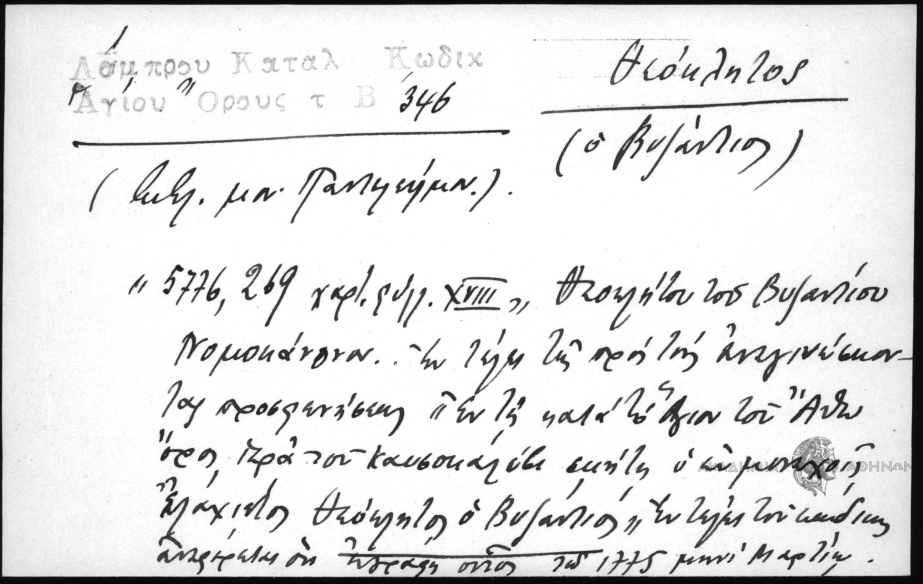 Λάμπρου Καταλ Κωδικ
Ἁγίου Ὄρους τ Β 346
Θεόκλητος
(ὁ Βυζάντιος)
(Ἐκκλ. μον. Παντελεήμον.).
"5776, 269 χαρτ. φύλλ. XVIII" Θεοκλήτου τοῦ Βυζαντίου
Νομοκάνονον.. Ἐν τέλει τῆς πρὸς τοὺς ἀναγινώσκον-
τας προσφωνήσεως "Ἐν τῇ κατὰ τὸ Ἅγιον τοῦ Ἄθω
ὄρος Ἱερᾷ τοῦ Καυσοκαλύβι σκήτῃ ὁ ἐν μοναχοῖς
Ἐλάχιστος Θεόκλητος ὁ Βυζάντιος" Ἐν τέλει τοῦ κώδικος
ὅτι ἐγράφη οὗτος τῷ 1775 μηνὶ Μαρτίῳ.